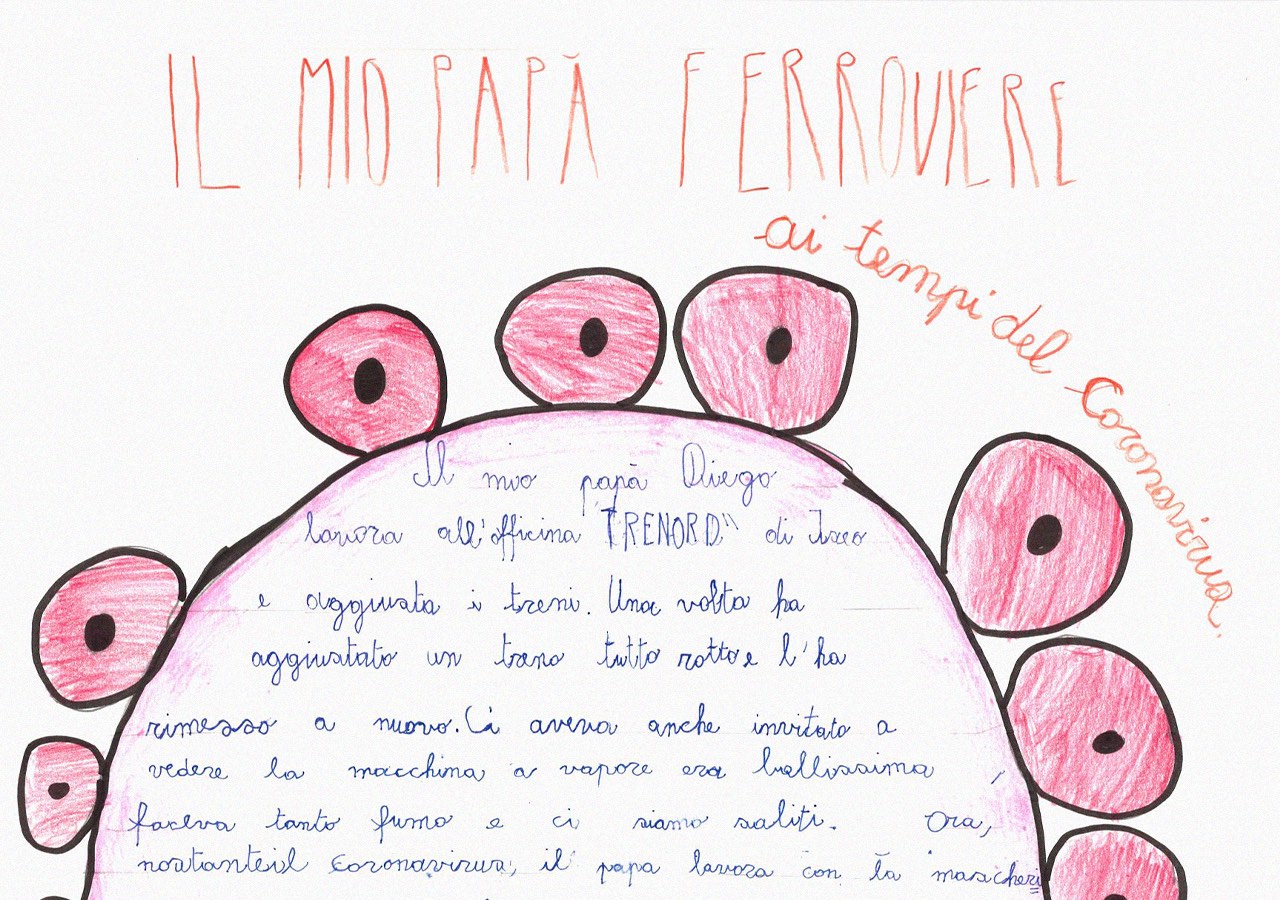 IL MIO PAPĂ FERROVIERE
ai tempi del Coronavirus.
Il mio papà Diego
lavora all'officina TRENORD" di Iseo
e aggiusta i treni. Una volta ha
aggiustato un treno tutto rotto e l'ha
rimesso a nuovo. Ci aveva anche invitato a
vedere la macchina a vapore era bellissima,
faceva tanto fumo e ci siamo saliti. Ora,
nostanteil coronavirus, il papa lavora con la mascheri